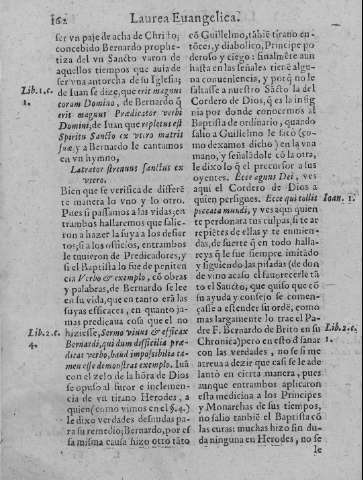 162 Laurea Euangelica.
ser vn paje de acha de Christo;
concebido Bernardo prophe-
tiza del vn Sancto varon de
aquellos tiempos que auia de
ser vna antorcha de su Iglesia;
de Iuan se dize, que erit magnus
coram Domino, de Bernardo q̃
erit magnus Predicator verbi
Domini, de Iuan que repletus est
Spiritu Sancto ex vtero matris
suæ, y a Bernardo le cantamos
en vn hymno,
Latrator strenuus sanctus ex
vtero.
Bien que se verifica de differẽ
te manera lo vno y lo otro.
Pues si passamos a las vidas; en
trambos hallaremos que salie-
ron a hazer la suya a los desier
tos; si a los officios, entrambos
le tuuieron de Predicadores, y
si el Baptista lo fue de peniten
cia Verbo & exemplo, cõ obras
y palabras, de Bernardo se lee
en su vida, que en tanto era las
suyas efficaces, en quanto ja-
mas predicaua cosa que el no
hiziesse, Sermo ipsius & efficax
Bernardi, qui dum difficilia præ-
dicat verbo, haud impossibilia ta-
men esse demonstrat exemplo. Iuã
con el zelo de la hõra de Dios
se opuso al furor e inclemen-
cia de vn tirano Herodes, a
quien (como vimos en el §.4.)
le dixo verdades desnudas pa-
ra su remedio; Bernardo, por es
sa misma causa hizo otro tãto
Lib. 1. c.
1.
Lib. 2. c.
4.
cõ Guillelmo, tãbiẽ tirano en-
tõces, y diabolico, Principe po
deroso y ciego: finalmẽte aun
hasta en las señales tiene algu-
na conueniencia, y por q̃ no le
faltasse a nuestro Sãcto la del
Cordero de Dios, q̃ es la insig
nia por donde conocemos al
Baptista de ordinario, quando
salio a Guillelmo le sacò (co-
mo dexamos dicho) en la vna
mano, y señalãdole cõ la otra,
le dixo lo q̃ el precursor a sus
oyentes. Ecce agnus Dei, ves
aqui el Cordero de Dios a
quien persigues. Ecce qui tollit
peccata mundi, y ves aqui quien
te perdonara tus culpas, si te ar
repiẽtes de ellas y te enmien-
das, de suerte q̃ en todo halla-
reys q̃ le fue siempre imitado
y siguiendo las pisadas (de don
de vino acaso el fauorecerle tã
to el Sancto, que quiso que cõ
su ayuda y consejo se comen-
çasse a estender su ordẽ, como
mas largamente lo trae el Pa-
dre F. Bernardo de Brito en su
Chronica) pero en esto d sanar
con las verdades, no se si me
atreua a dezir que casi se le ade
lanto en cierta manera, pues
aunque entrambos aplicaron
esta medicina a los Principes
y Monarchas de sus tiempos,
no salio tanbiẽ el Baptista cõ
las curas: muchas hizo sin du-
da ninguna en Herodes, no se
le
Ioan. 1.
Lib. 2. c.
1.